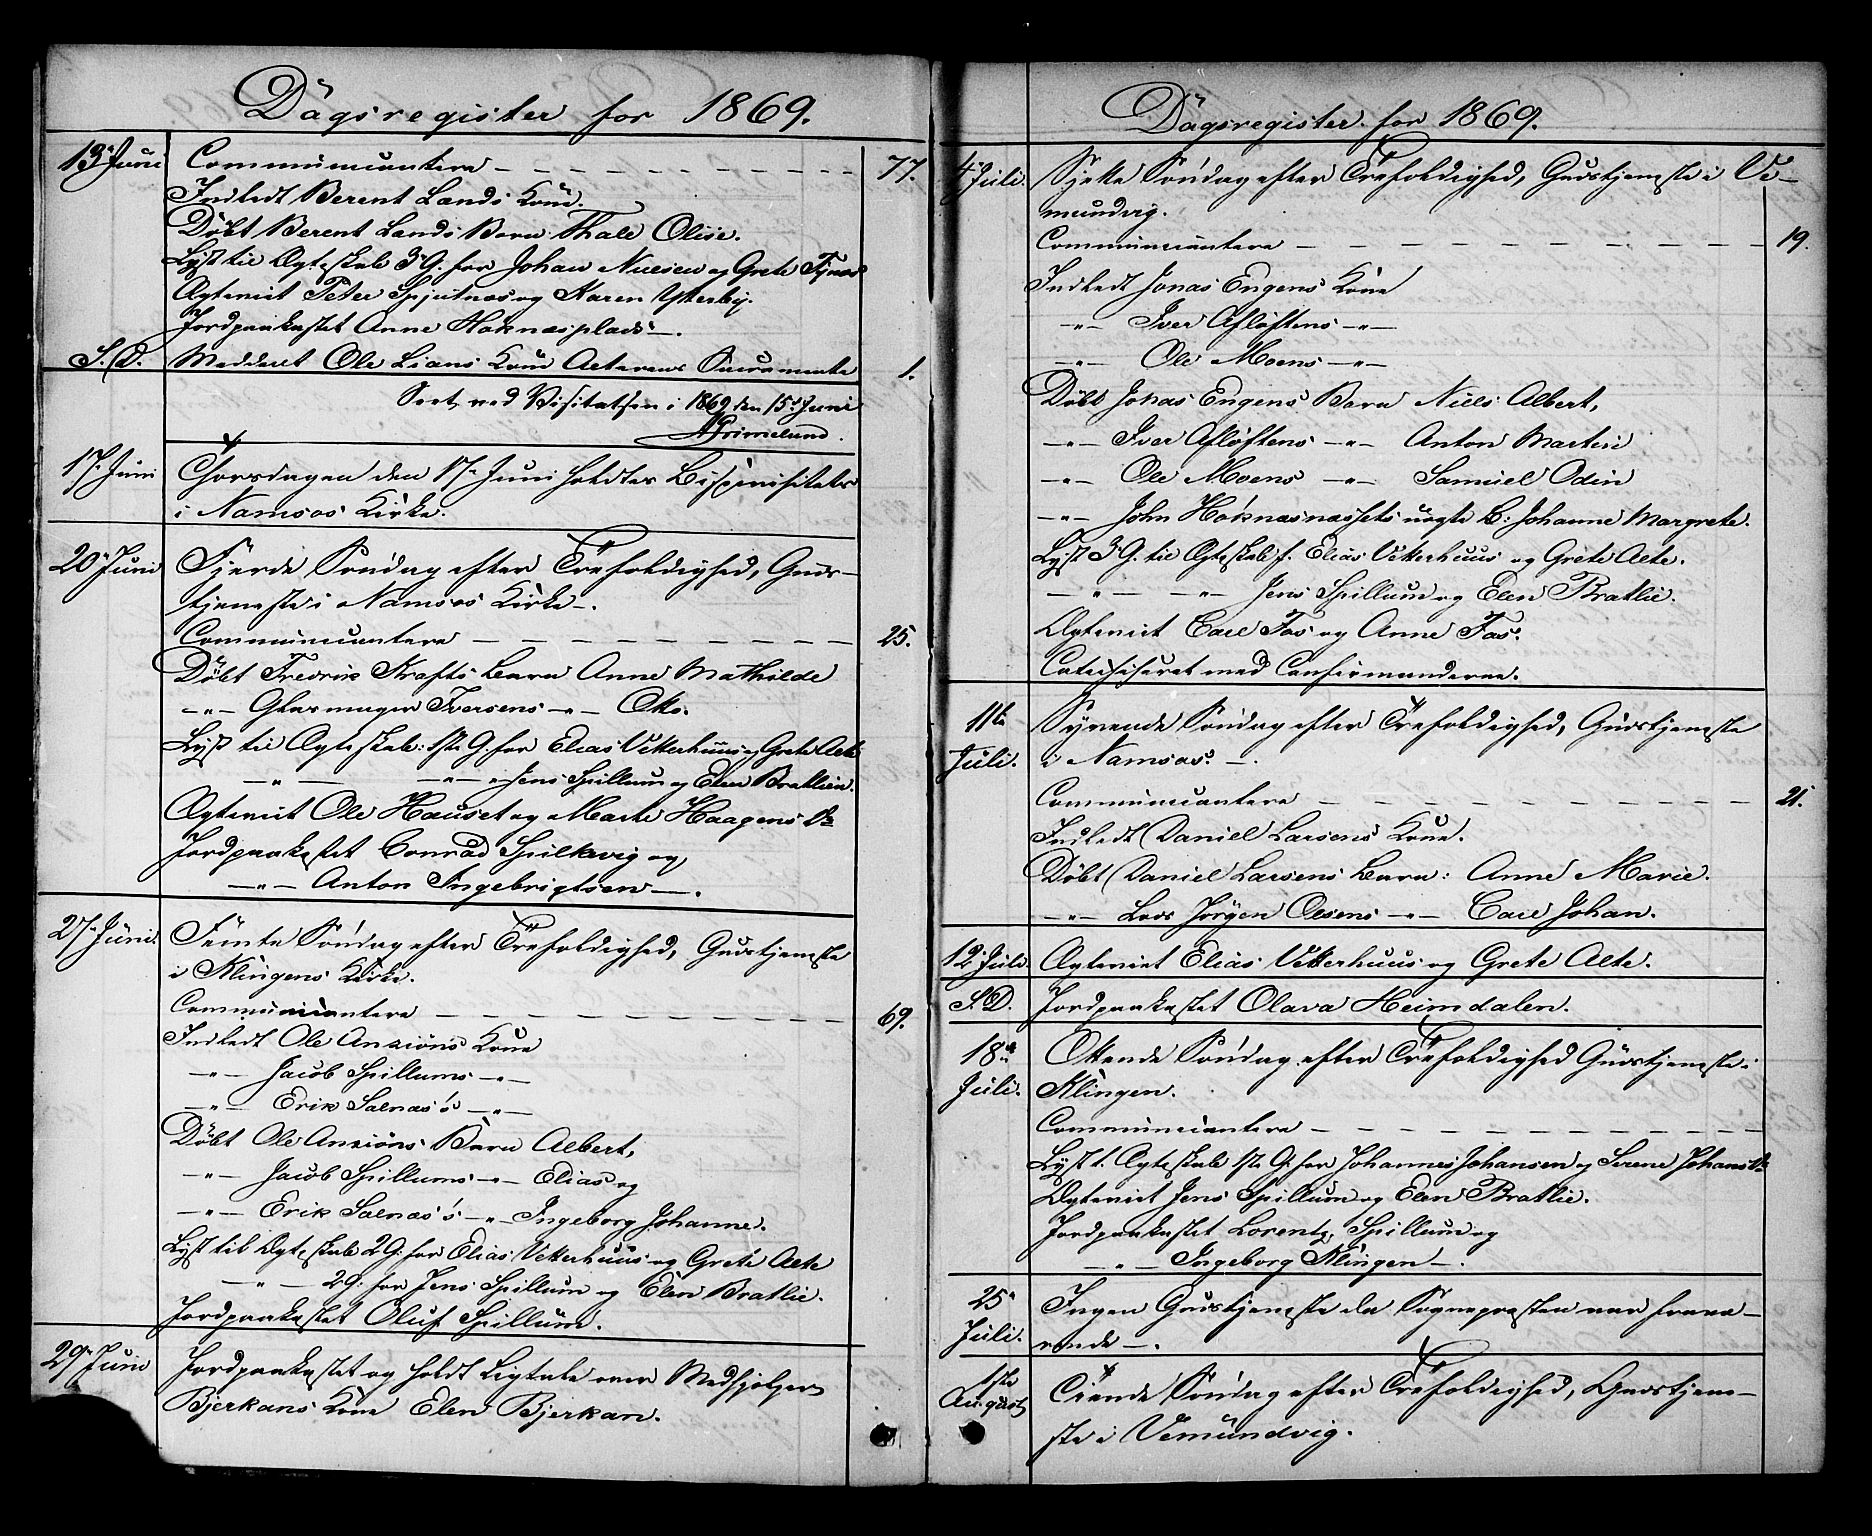 Dagsregister for 1869.
13de Juni Communicantere — 77.
Indledt Berent Lands Kone.
Døbt Berent Lands Barn: Thale Olise.
Lyst til Ægteskab 3' G. for Johan Nielsen og Grete
Ægteviet Peter Spjutnæs og Karen Ytterby.
Jordpaakastet Anne Høknæsplads —.
S. D. Meddeelt Ole Lians Kone Alterens Sacramente 1.
Seet ved Visitatsen i 1869 den 15de Juni
AGrimelund.
17de Juni Thorsdagen den 17de Juni holdtes Bispevisitats
i Namsos Kirke.
20de Juni Fjerde Søndag efter Trefoldighed, Guds-
tjeneste i Namsos Kirke —.
Communicantere — 25.
Døbt Fredrik Krafts Barn Anne Mathilde
—"— Glasmager Iversens —"— Otto.
Lyst til Ægteskab: 1ste G. for Elias Vetterhuus og Grete Alte
—"— —"— Jens Spillum og Elen Bratlien.
Ægteviet Ole Hauset og Marte Haagensdr
Jordpaakastet Conrad Spilkevig og
—"— Anton Ingebrigtsen —.
27de Juni. Femte Søndag efter Trefoldighed, Gudstjeneste
i Klingens Kirke.
Communicantere — 69.
Indledt Ole Anziøns Kone
—"— Jacob Spillums —"—
—"— Erik Salnæs's —"—
Døbt Ole Anziøns Barn Albert,
—"— Jacob Spillums —"— Elias og
—"— Erik Salnæs's —"— Ingeborg Johanne.
Lyst til Ægteskab 2 G. for Elias Vetterhuus og Grete Alte
—"— 2 G. for Jens Spillum og Elen Bratlie.
Jordpaakastet Oluf Spillum.
29de Juni Jordpaakastet og holdt Ligtale over Medhjelper
Bjerkans Kone Elen Bjerkan.
Dagsregister for 1869.
4de Juli. Sjette Søndag efter Trefoldighed, Gudstjeneste i Ve-
mundvig.
Communicantere — 19.
Indledt Jonas Engens Kone
—"— Iver Afløftens —"—
—"— Ole Moens —"—
Døbt Jonas Engens Barn Niels Albert,
—"— Iver Afløftens —"— Anton Martin
—"— Ole Moens —"— Samuel Odin
—"— John Høknæsnæssets uægte B: Johanne Margrete.
Lyst 3' G. til Ægteskab f. Elias Vetterhuus og Grete Alte.
—"— —"— Jens Spillum og Elen Bratlie.
Ægteviet Carl Fos og Anne Fos.
Catechiseret med Confirmanderne.
11te Juli. Syvende Søndag efter Trefoldighed, Gudstjeneste
i Namsos. —.
Communicantere — 21.
Indledt Daniel Larsens Kone.
Døbt Daniel Larsens Barn: Anne Marie.
—"— Lars Jørgen Olsens —"— Carl Johan.
12 Juli Ægteviet Elias Vetterhuus og Grete Alte.
S. D. Jordpaakastet Olava Heimdalen.
18de Juli. Ottende Søndag efter Trefoldighed Gudstjeneste i
Klingen.
Communicantere —
Lyst t. Ægteskab 1ste G. for Johannes Johansen og Serene Johansdr
Ægteviet Jens Spillum og Elen Bratlie.
Jordpaakastet Lorentz Spillum og
—"— Ingeborg Klingen —.
25de Juli. Ingen Gudstjeneste da Sognepresten var fravæ-
rende —.
1ste August Tiende Søndag efter Trefoldighed, Gudstjene-
ste i Vemundvig.